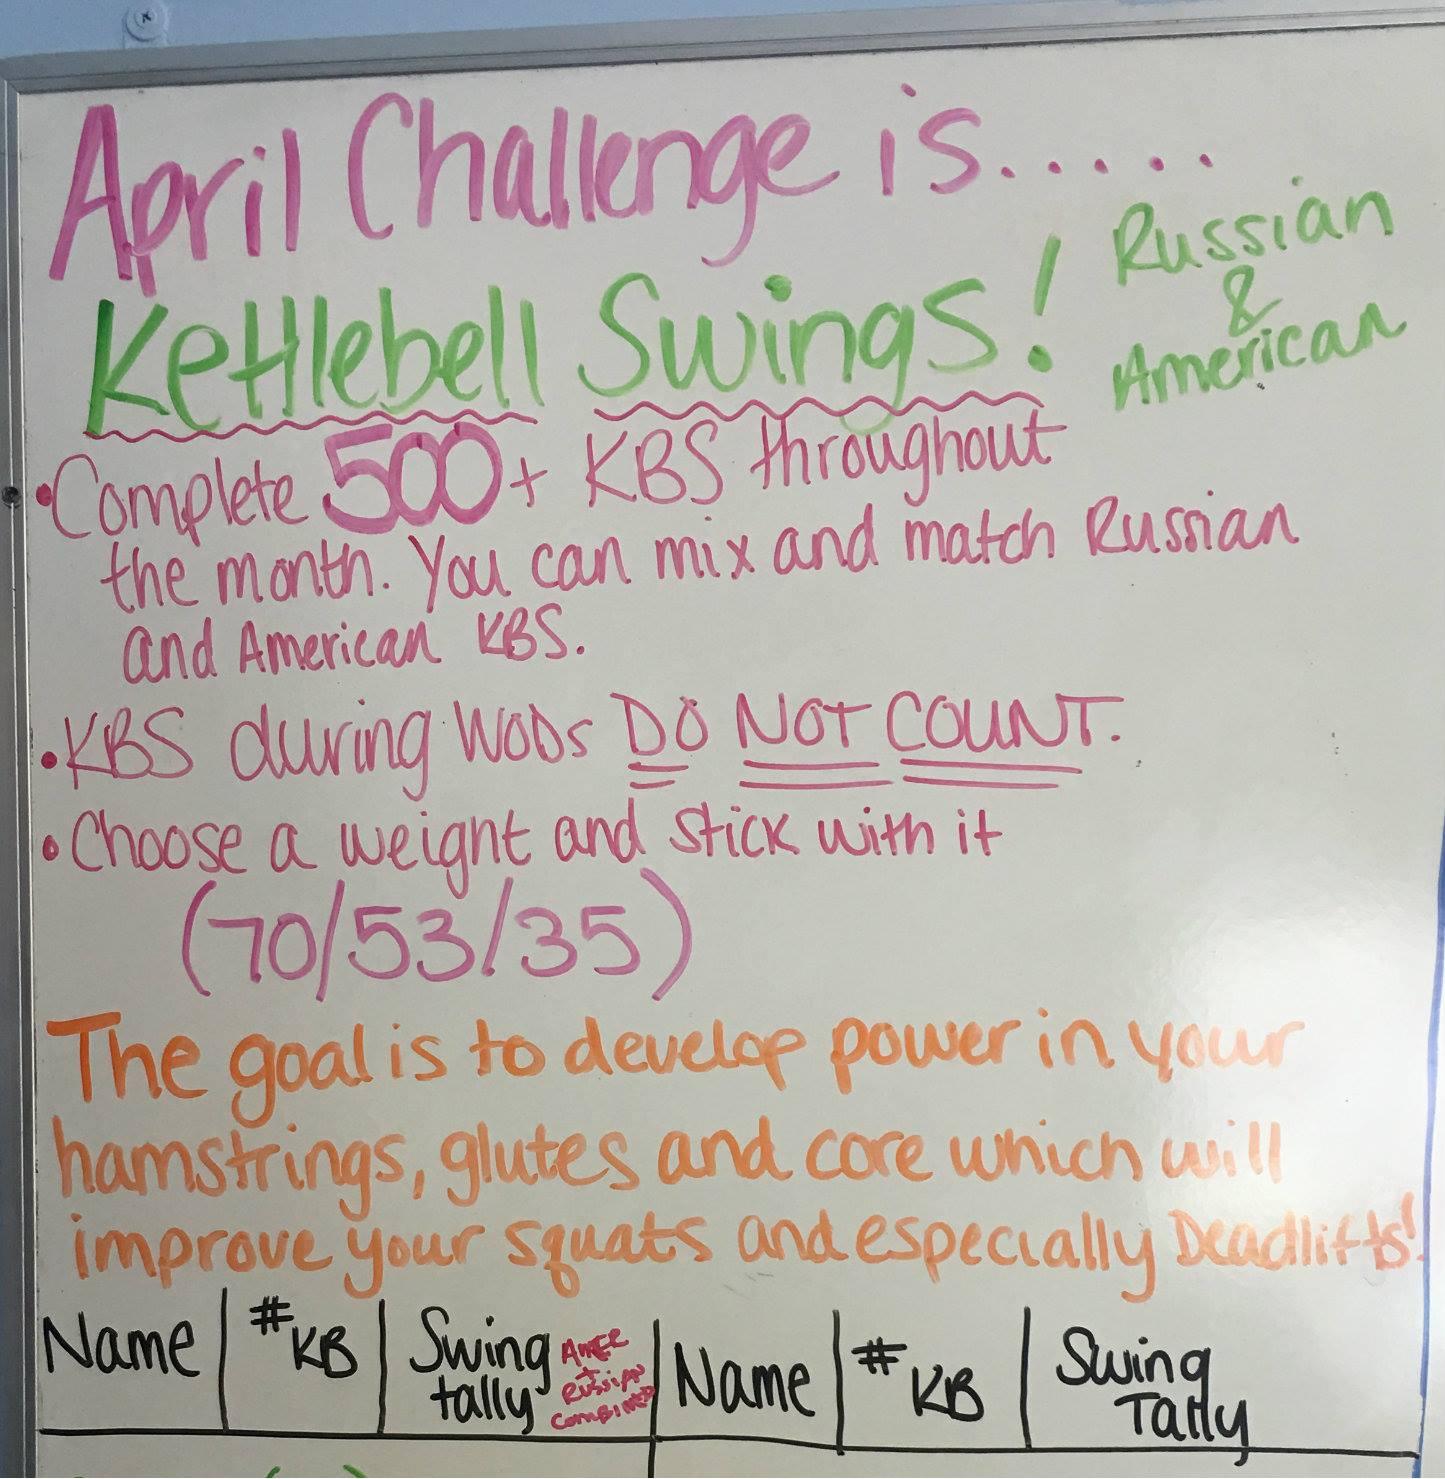 April Challenge is.....
Kettlebell Swings!
Russian
&
American
•Complete 500+ KBS throughout
the month. You can mix and match Russian
and American KBS.
•KBS during WODs DO NOT COUNT.
•Choose a weight and stick with it
(70/53/35)
The goal is to develop power in your
hamstrings, glutes and core which will
improve your squats and especially Deadlifts!
Name | # KB | Swing tally AMER + RUSSIAN COMBINED | Name | # KB | Swing Tally